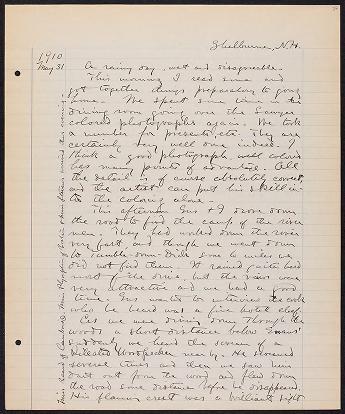 Shelburne, N.H.
1910
May 31
A rainy day, wet and disagreeable.
This morning I read some and
got together things preparatory to going
home. We spent some time in the
dining room going over the Sawyer
colored photographs again. We took
a number for presents, etc. They are
certainly very well done indeed. I
think a good photograph well colored
has many points of advantage. All
the detail is of course absolutely correct,
and the artist can put his skill in-
to the coloring alone.
This afternoon Gus & I drove down
the road to find the camp of the river
men. They had worked down the river
very fast, and though we went down
to
some six miles we
did not find them. It rained quite hard
most of the drive but the river was
very attractive and we had a good
time. Gus wanted to interview the cook
who he heard was a fine hotel chef.
As we were driving down through the
woods a short distance below Evans'
suddenly we heard the scream of a
Pileated Woodpecker near by. He screamed
several times and then we saw him
dart out from the wood and flew down
the road some distance before he disappeared.
His flaming crest was a brilliant sight